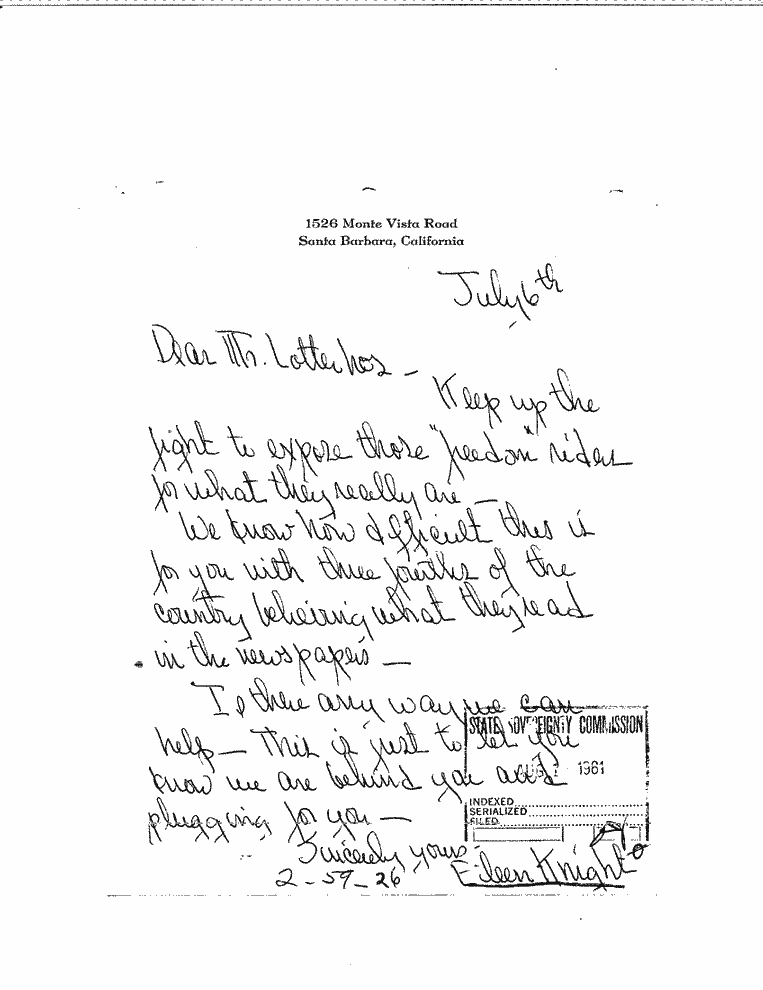 1526 Monte Vista Road
Santa Barbara, California
July 6th
Dear Mr. Lotterhos –
Keep up the
fight to expose those "freedom" riders
for what they really are –
We know how difficult this is
for you with three fourths of the
country believing what they read
in the newspapers –
Is there any way we can
help – This is just to let you
know we are behind you and
plugging for you –
Sincerely yours –
Eileen Knight
2-59-26
STATE SOVEREIGNTY COMMISSION
1961
INDEXED
SERIALIZED
FILED